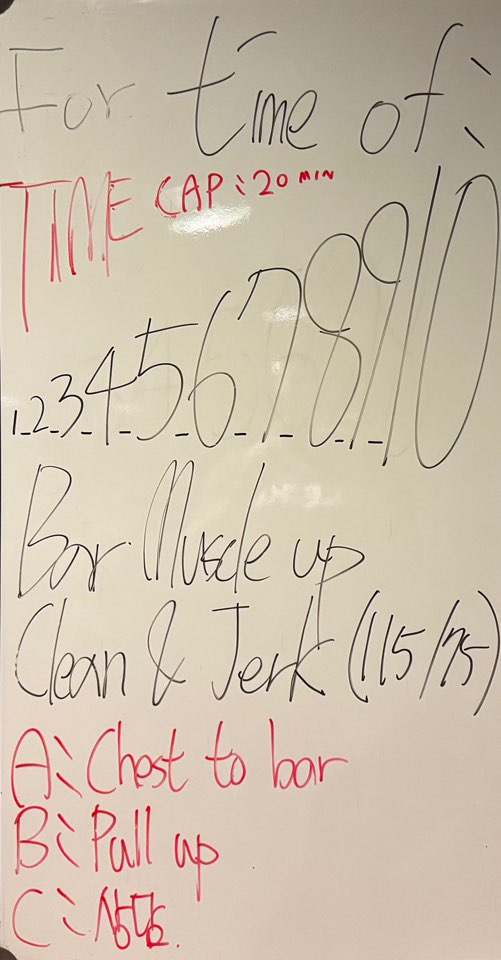 For time of:
TIME CAP:20 MIN
1_2_3_4_5_6_7_8_9_10
Bar Muscle up
Clean & Jerk (115/75)
A: Chest to bar
B: Pull up
C: